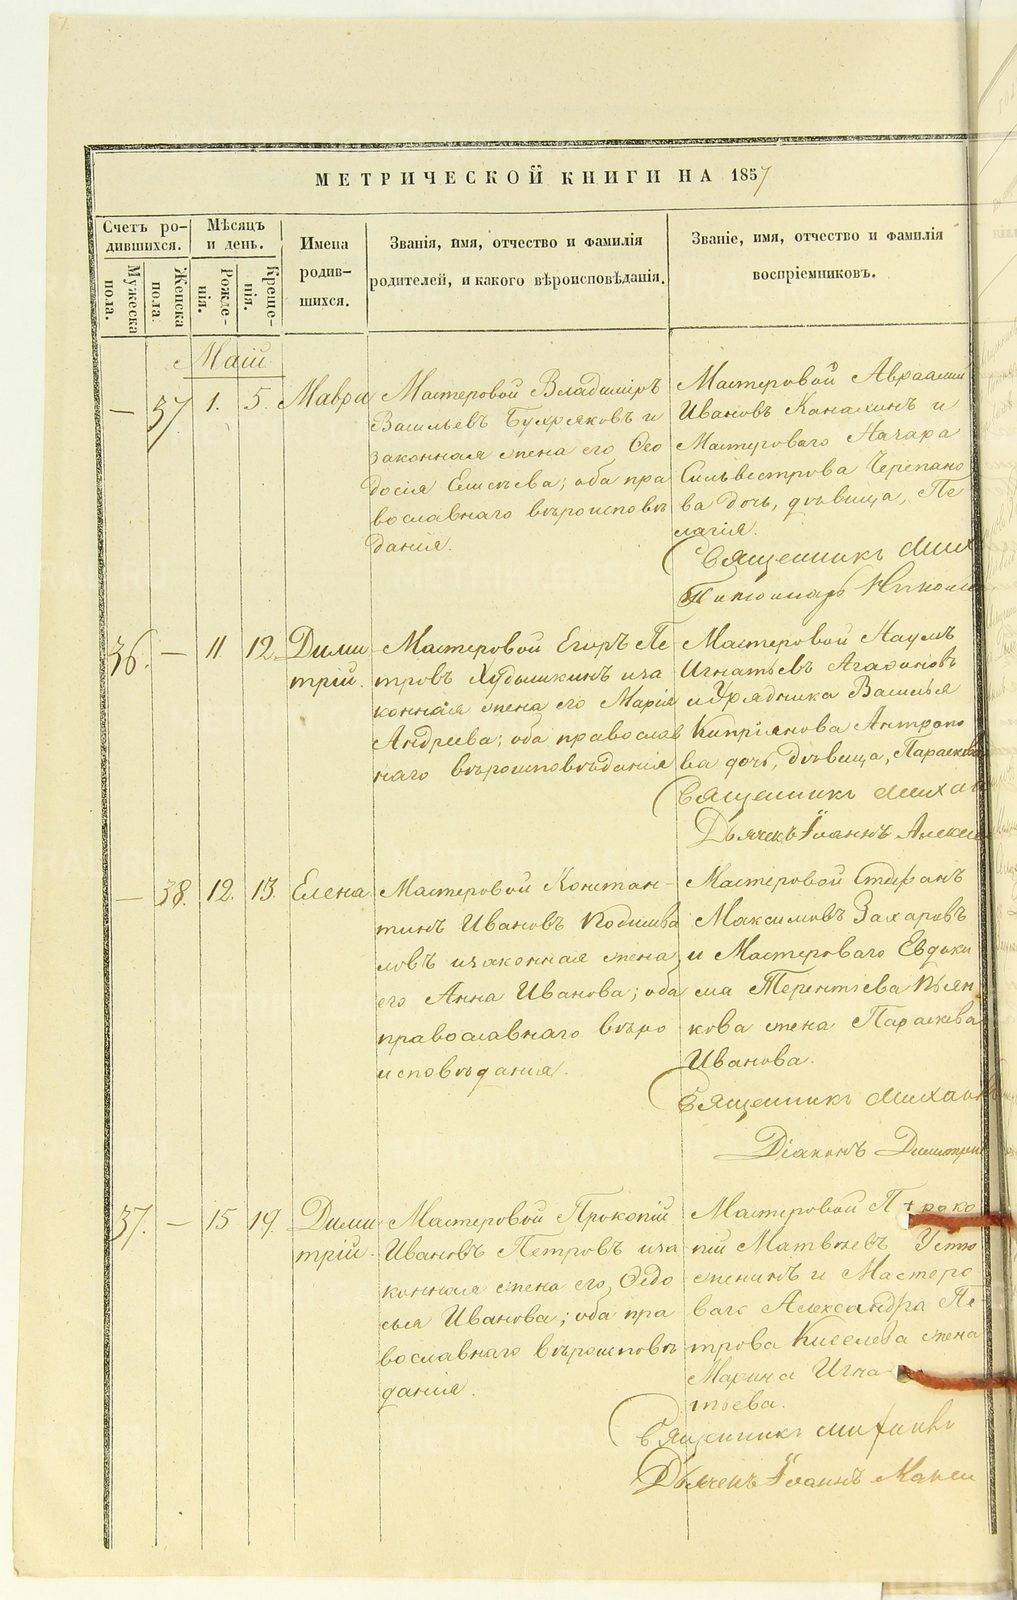 МЕТРИЧЕСКОЙ КНИГИ НА 1857
Счетъ ро-
дившихся.
Мужеска
пола.
Женска
пола.
Мѣсяцъ
и день.
Рожде-
нія.
Креще-
нія.
Имена
родив-
шихся.
Званія, имя, отчество и фамилія
родителей, и какого вѣроисповѣданія.
Званіе, имя, отчество и фамилія
воспріемниковъ.
Маій
— 37 1. 5. Мавра
Мастеровой Владиміръ
Васильевъ Бухряковъ и
законная жена его Ѳео
досія Елисѣева; оба пра
вославнаго вѣроисповѣ
данія.
Мастеровой Авраамій
Ивановъ Канахинъ и
Мастероваго Назара
Сильвестрова Черепано
ва дочь, дѣвица, Пе
лагія.
Священникъ Мих
Пономарь Никола
36. — 11 12. Дими
трій.
Мастеровой Егоръ Пе
тровъ Худышкинъ и за
конная жена его Марія
Андреева; оба православ
наго вѣроисповѣданія
Мастеровой Наумъ
Игнатьевъ Агафоновъ
и Урядника Василья
Кипріянова Антропо
ва дочь, дѣвица, Параскева
Священникъ Михаи
Дьячекъ Іоаннъ Алексе
— 38. 12. 13. Елена
Мастеровой Констан-
тинъ Ивановъ Кодиива
ловъ и законная жена
его Анна Иванова; оба
православнаго вѣро
исповѣданія.
Мастеровой Стефанъ
Максимовъ Захаровъ
и Мастероваго Евдоки
ма Терентіева Кьян
кова жена Параскева
Иванова.
Священникъ Михаи
Діаконъ Димитрій
37. — 15 19. Дими
трій.
Мастеровой Прокопій
Ивановъ Петровъ и за
конная жена его, Ѳедо
сья Иванова; оба пра
вославнаго вѣроисповѣ
данія.
Мастеровой Проко
пій Матвѣевъ Устю
жениновъ и Мастеро
ваго Александра Пе-
трова Киселева жена
Марина Игна-
тьева.
Священникъ Михаилъ
Дьячекъ Іоаннъ